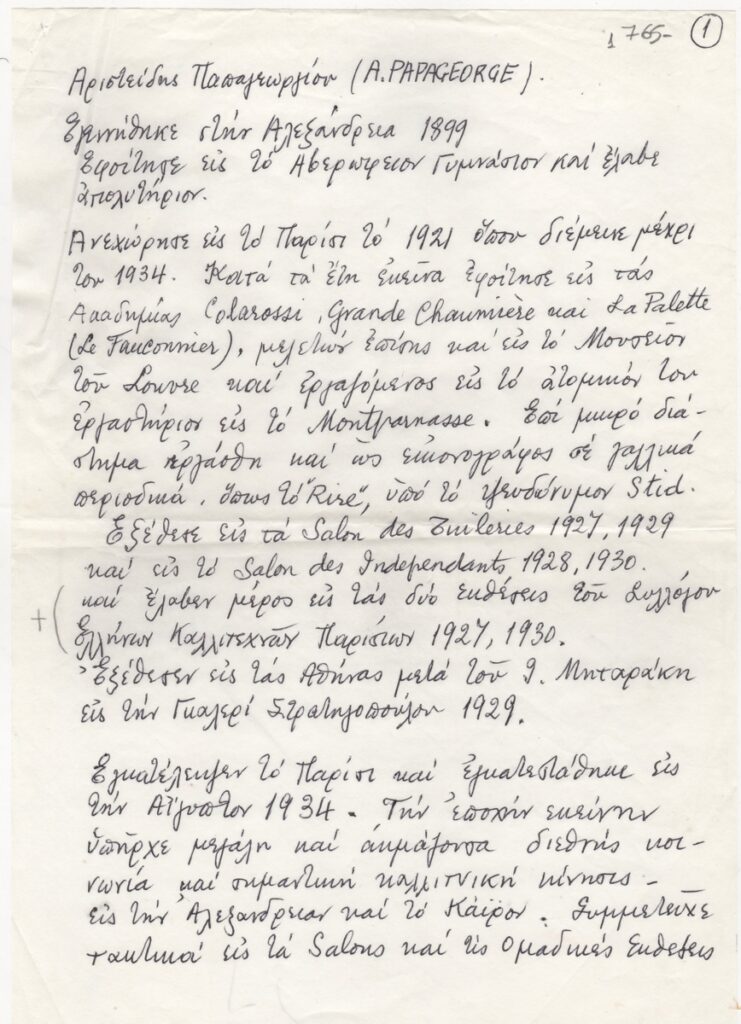 1 765- 1
Αριστείδης Παπαγεωργίου (A. PAPAGEORGE).
Εγεννήθηκε στήν Αλεξάνδρεια 1899
Εφοίτησε εις τό Αβερωφειον Γυμνάσιον καί έλαβε
απολυτήριον.
Ανεχώρησε εις τό Παρίσι τό 1921 όπου διέμεινε μέχρι
του 1934. Κατά τά έτη εκείνα εφοίτησε εις τάς
Ακαδημίας Colarossi, Grande Chaumière καί La Palette
(Le Fauconnier), μελετών επίσης καί εις τό Μουσείον
τού Louvre καί εργαζόμενος εις τό ατομικόν του
εργαστήριον εις τό Montparnasse. Επί μικρό διά-
στημα εργάσθη καί ως εικονογράφος σέ γαλλικά
περιοδικά, όπως τό "Rire", υπό τό ψευδώνυμον Stid.
Εξέθεσε εις τά Salon des Tuileries 1927, 1929
καί εις τό Salon des Independants 1928, 1930.
+ ( καί έλαβεν μέρος εις τάς δύο εκθέσεις τού Συλλόγου
Ελλήνων Καλλιτεχνών Παρισίων 1927, 1930.
Εξέθεσεν εις τάς Αθήνας μετά τού Ι. Μηταράκη
εις τήν Γκαλερί Στρατηγοπούλου 1929.
Εγκατέλειψεν τό Παρίσι καί εγκατεστάθηκε εις
τήν Αίγυπτον 1934. Τήν εποχήν εκείνην
υπήρχε μεγάλη καί ακμάζουσα διεθνής κοι-
νωνία καί σημαντική καλλιτνική κίνησις -
εις τήν Αλεξάνδρειαν καί τό Κάιρον. Συμμετείχε
τακτικά εις τά Salons καί τις Ομαδικές Εκθέσεις